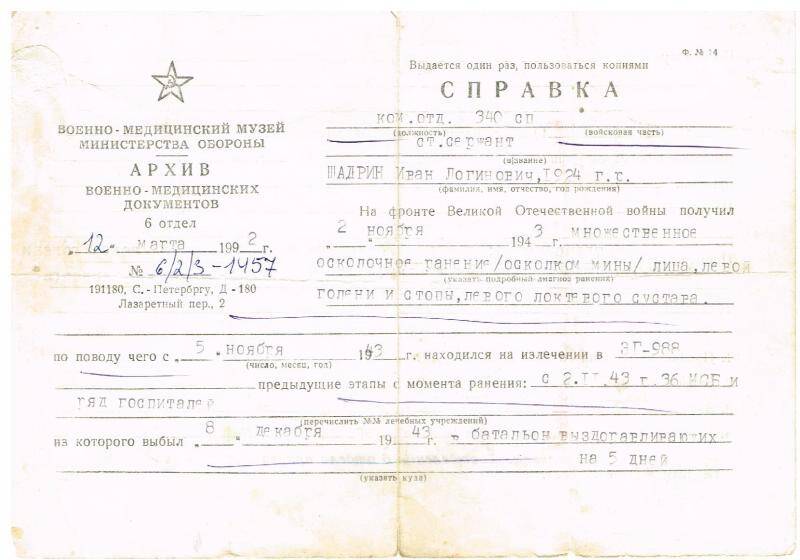 Ф. № 14
Выдается один раз, пользоваться копиями
СПРАВКА
ВОЕННО-МЕДИЦИНСКИЙ МУЗЕЙ
МИНИСТЕРСТВА ОБОРОНЫ
АРХИВ
ВОЕННО-МЕДИЦИНСКИХ
ДОКУМЕНТОВ
6 отдел
"12" марта 1992 г.
№ 6/2/3-1457
191180, С.-Петербргу, Д-180
Лазаретный пер., 2
ком.отд. 340 сп
(должность) (войсковая часть)
ст.сержант
(в/звание)
ШАДРИН Иван Логинович, 1924 г.р.
(фамилия, имя, отчество, год рождения)
На фронте Великой Отечественной войны получил
"2" ноября 1943 множественное
осколочное ранение/осколком мины/ лица, левой
(указать подробный диагноз ранения)
голени и стопы, левого локтевого сустава.
по поводу чего с „5" ноября 1943 г. находился на излечении в ЭГ-988
(число, месяц, год)
предыдущие этапы с момента ранения: с 2.II.43 г. 36 МСБ и
ряд госпиталей
(перечислить №№ лечебных учреждений)
из которого выбыл „8" декабря 1943 г. в батальон выздоравливающих
на 5 дней
(указать куда)